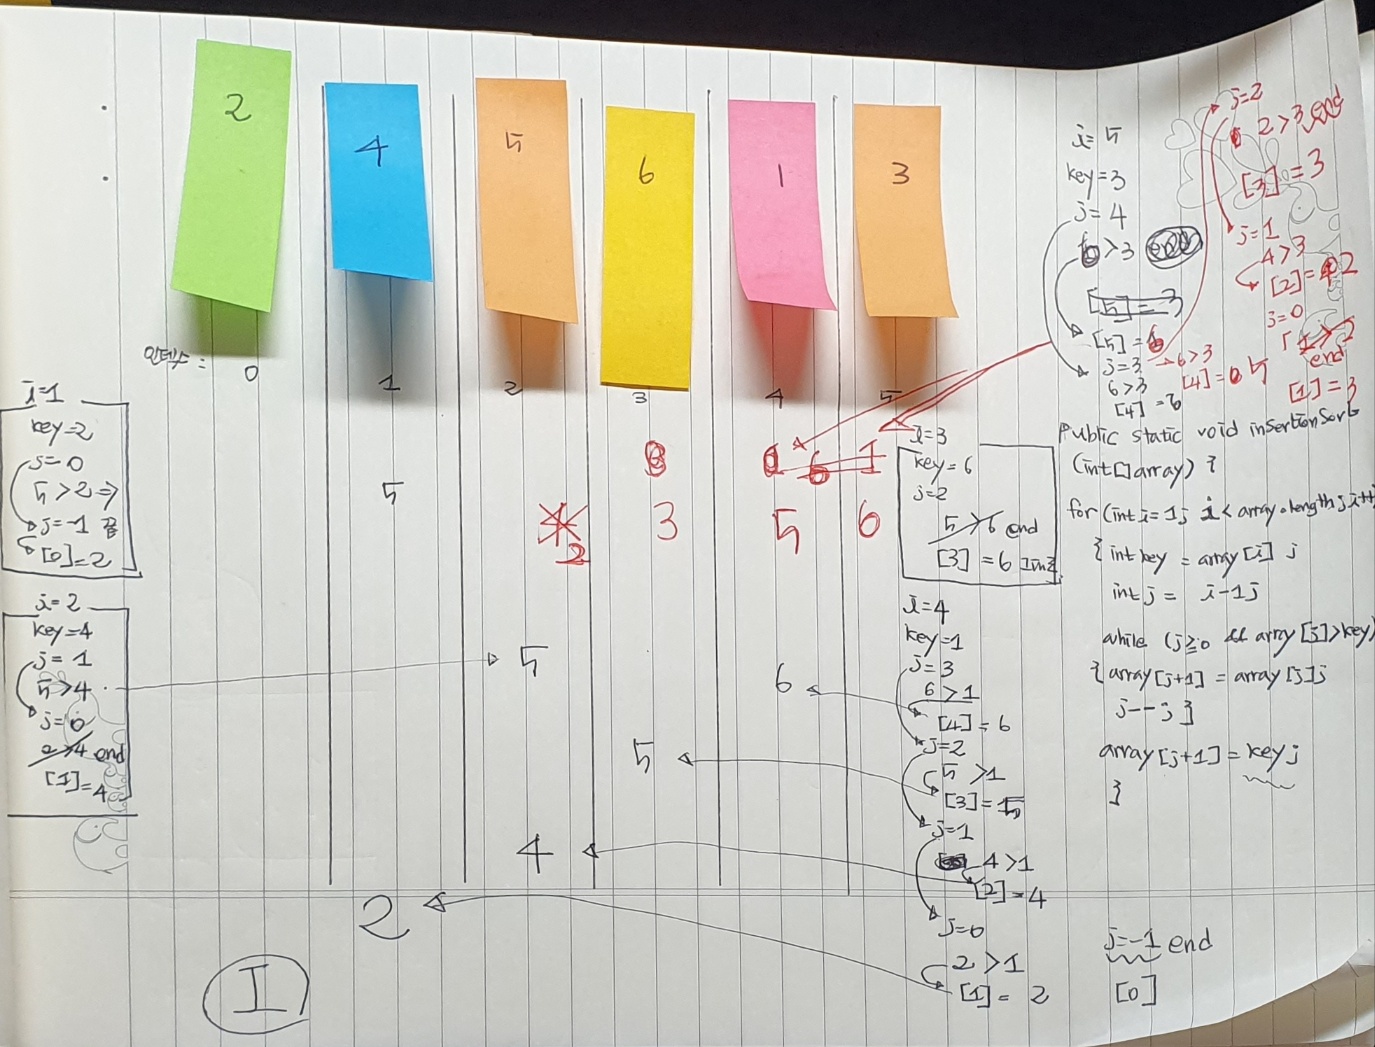 2
4
5
6
1
3
인덱스 :
0
1
2
3
4
5
i=1
key=2
j=0
5 > 2 ⇒
j=-1
[0]=2
i=2
key=4
j=1
5>4
j=0
2>4 end
[1]=4
5
5
6
5
4
2
1
6
1
2
3
5
6
I
i=3
key=6
j=2
5>6 end
[3]=6
i=4
key=1
j=3
6>1
[4]=6
j=2
5>1
[3]=5
j=1
4>1
[2]=4
j=0
2>1
[1]=2
j=-1 end
[0]
i=5
key=3
j=4
6>3
[5]=3
[5]=6
j=3 → 6>3
6>3
[4]=5
[4]=6
j=2
2>3 end
[3]=3
j=1
4>3
[2]=2
j=0
1>2
end
[1]=3
Public static void insertionSort
(int[]array) {
for(int i=1; i<array.length; i++)
{ int key = array[i] ;
int j = i-1;
while (j≥0 && array[j]>key)
{ array[j+1] = array[j];
j--; }
array[j+1] = key;
}